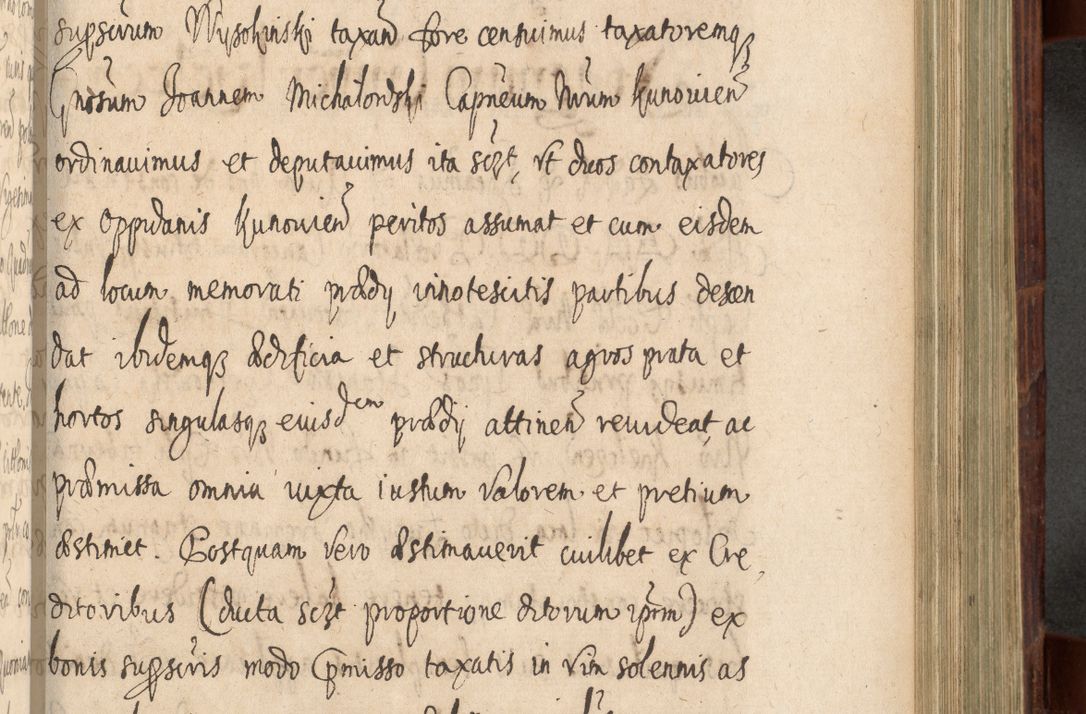 supscrum Wysokinski taxand fore censuimus taxatoremq3
Gnosum Joannem Michałowski Capneum Nrum Kunovien
ordinavimus et deputavimus ita scizt, vt duos contaxatores
ex Oppidanis Kunovien peritos assumat et cum eisdem
ad locum memorati prædij innotescitis partibus descen
dat ibidemq3 ædificia et structuras agros prata et
hortos singulasq3 eiusdem prædij attinen revideat, ac
præmissa omnia iuxta iustum valorem et pretium
æstimet. Postquam vero æstimaverit cuilibet ex Cre,
ditoribus (ducta scizt proportione ditorum iprm) ex
bonis supscris modo pmisso taxatis in vim solennis as